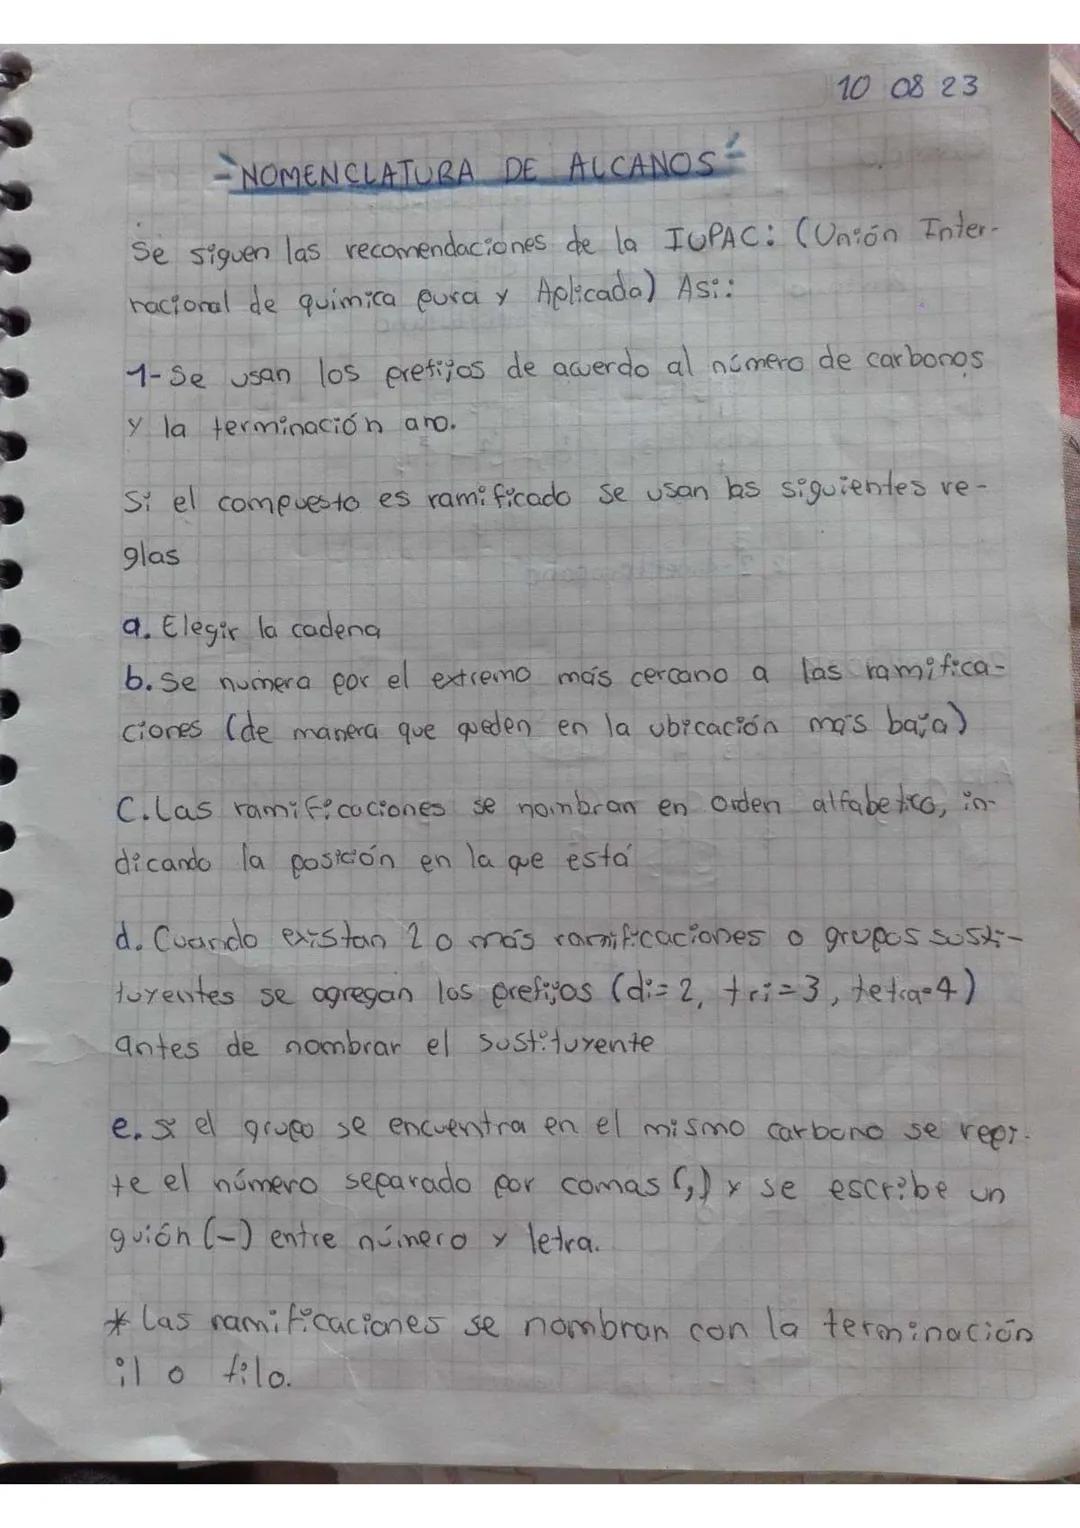 10 08 23
-NOMENCLATURA DE ALCANOS-
Se siguen las recomendaciones de la IUPAC: (Unión Inter-
nacional de química pura y Aplicada) Así:
1- Se usan los prefijos de acuerdo al número de carbonos
y la terminación ano.
Si el compuesto es ramificado se usan las siguientes re-
glas
a. Elegir la cadena
b. Se numera por el extremo más cercano a las ramifica-
ciones (de manera que queden en la ubicación más baja)
C. Las ramificaciones se nombran en orden alfabetico, in-
dicando la posición en la que está
d. Cuando existan 2 o más ramificaciones o grupos susti-
tuyentes se agregan los prefijos (di=2, tri=3, tetra=4)
antes de nombrar el sustituyente
e. Si el grupo se encuentra en el mismo carbono se repi-
te el número separado por comas (,) y se escribe un
guión (-) entre número y letra.
* Las ramificaciones se nombran con la terminación
il o tilo.